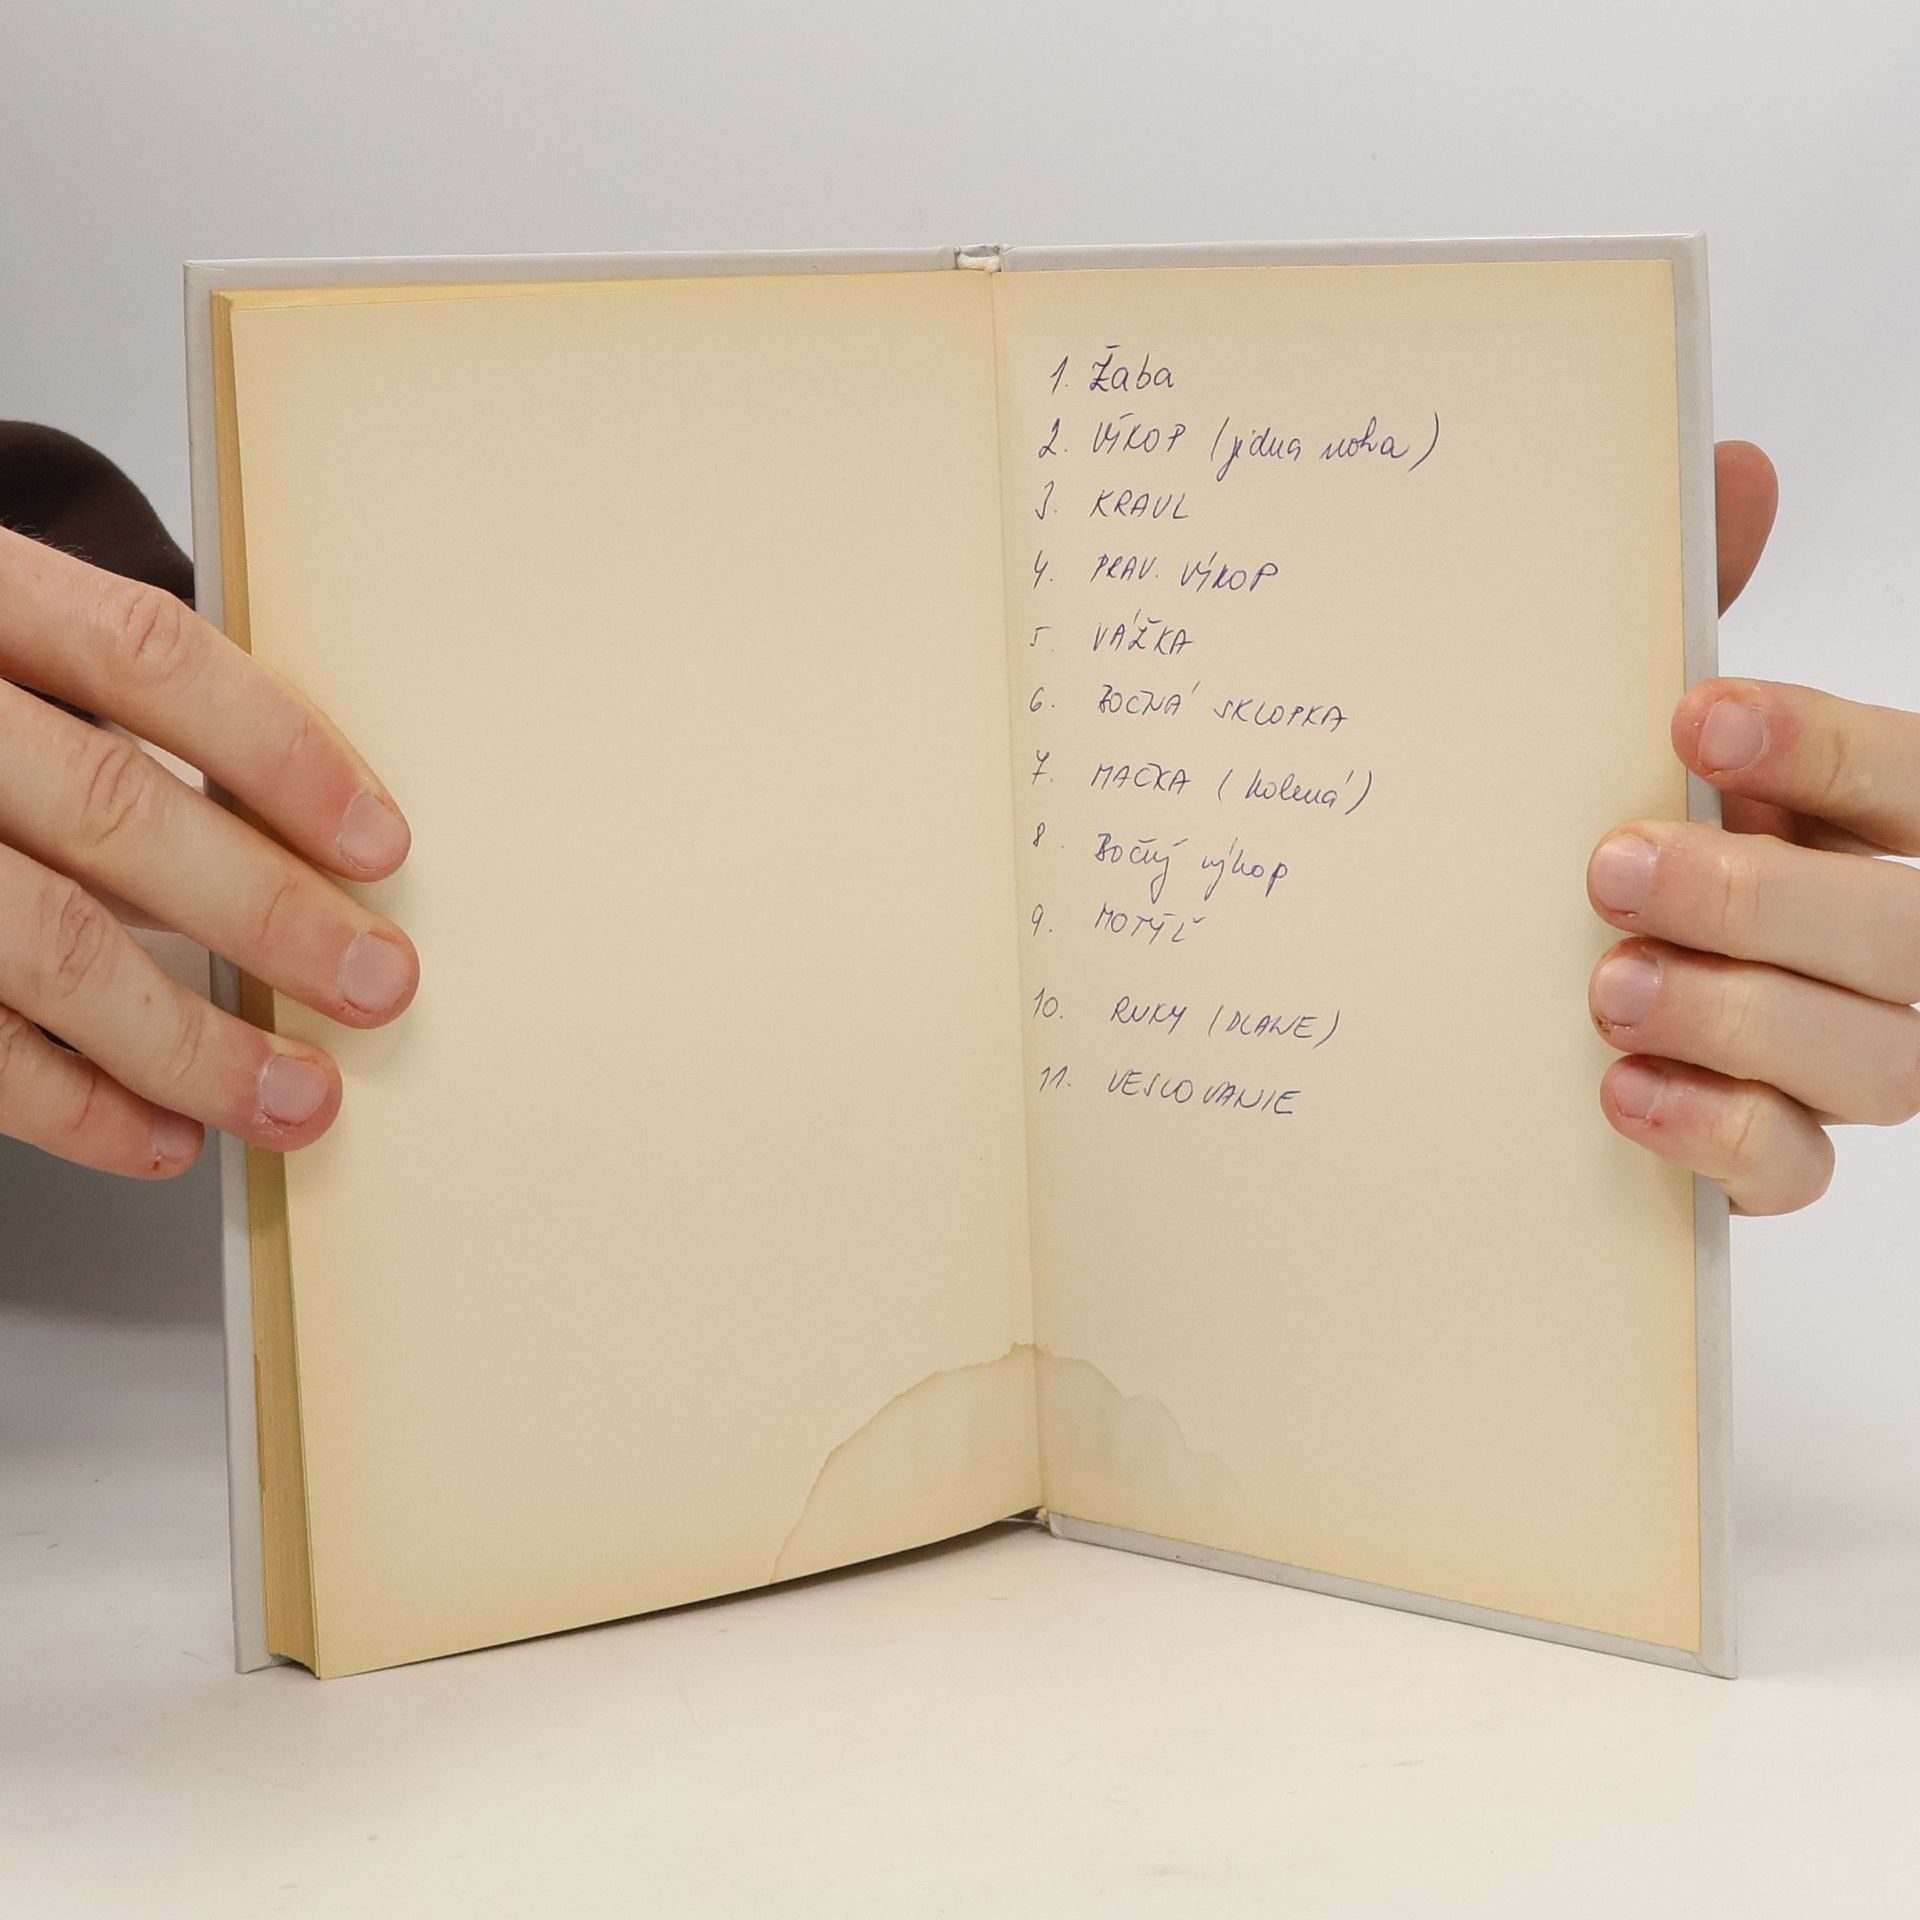 1. Žaba
2. VÝKOP (jedna noha)
3. KRAUL
4. PRAV. VÝKOP
5. VÁŽKA
6. BOČNÁ SKLOPKA
7. MAČKA (kolená)
8. Bočný výkop
9. MOTÝĽ
10. RUKY (DLANE)
11. VESLOVANIE